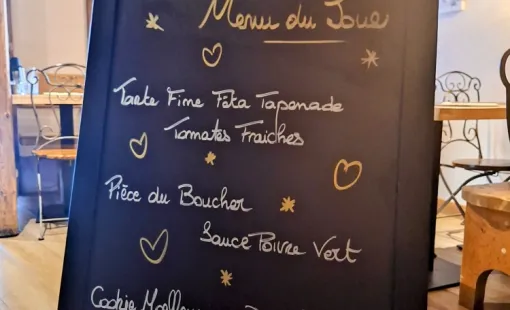 Menu du Jour
Tarte Fine Feta Tapenade
Tomates Fraiches
Pièce du Boucher
Sauce Poivre Vert
Cookie